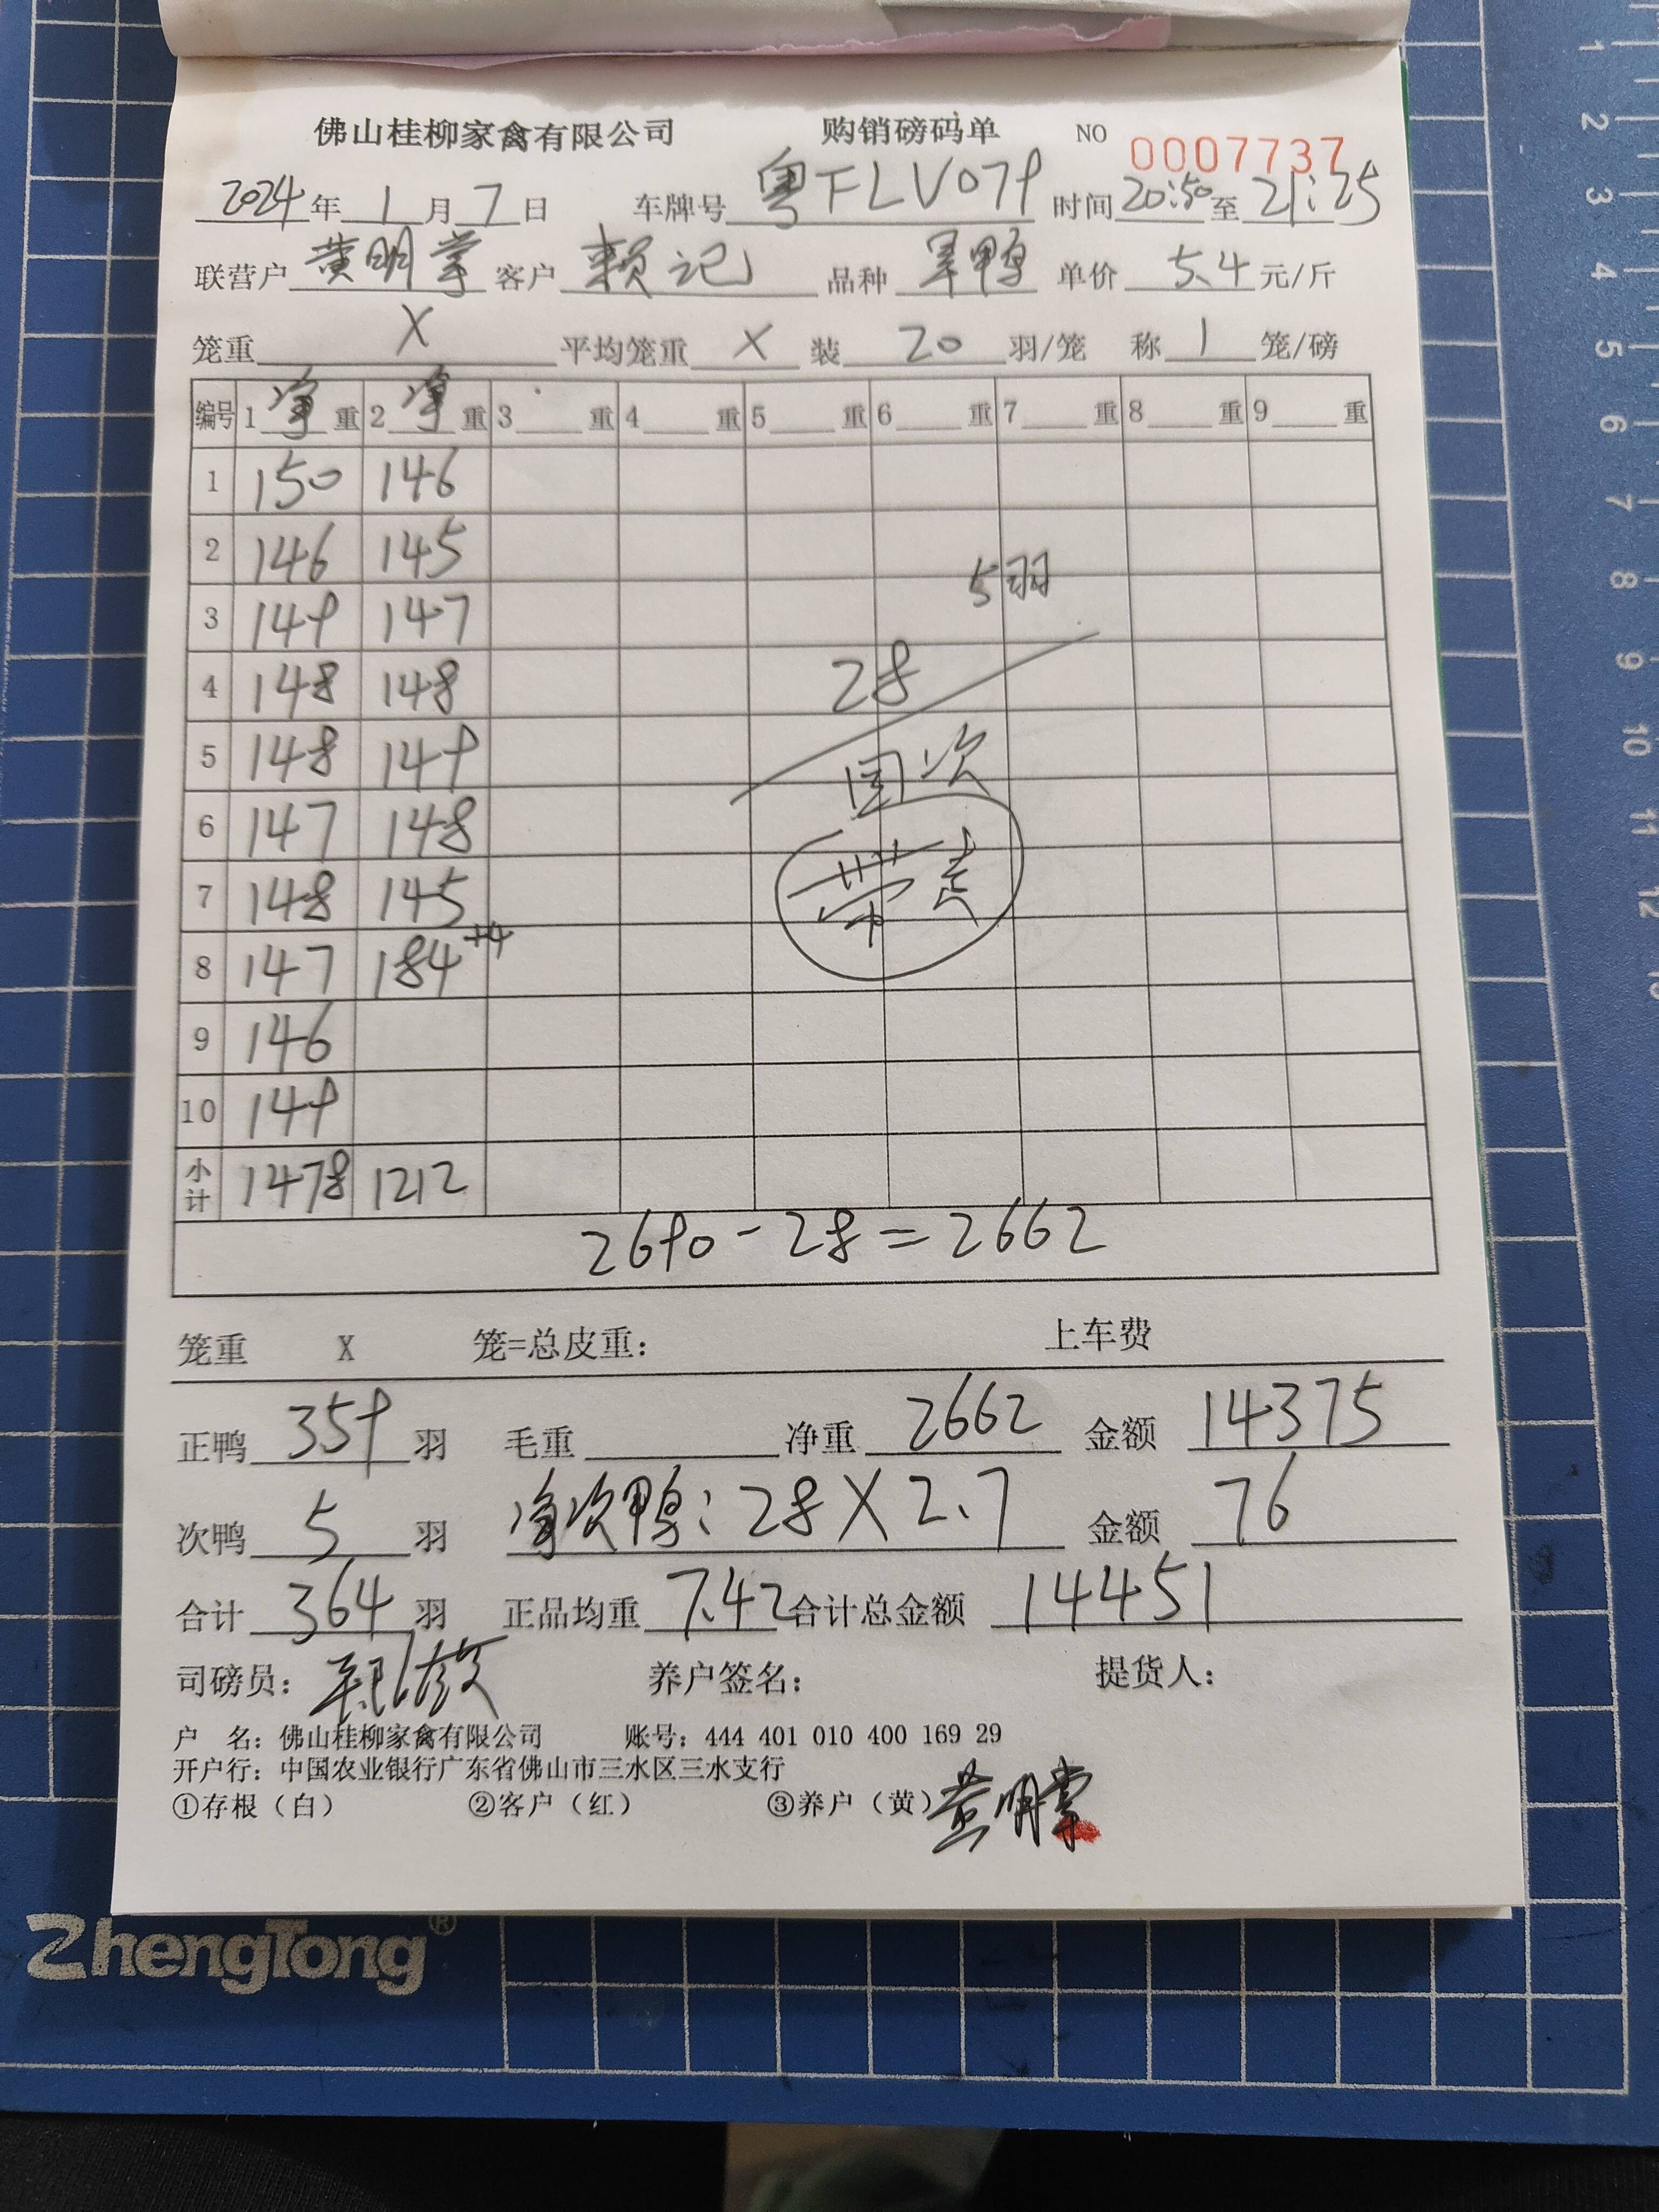 佛山桂柳家禽有限公司 购销磅码单 NO 0007737
2024年1月7日 车牌号 粤FLV079 时间20:50至21:25
联营户 黄明掌 客户 赖记 品种 羊鸭 单价 5.4 元/斤
笼重 X 平均笼重 X 装 20 羽/笼 称 1 笼/磅
编号 1 净 重 2 净 重 3 重 4 重 5 重 6 重 7 重 8 重 9 重
1 150 146
2 146 145
5羽
3 149 147
4 148 148
28
5 148 149
国次
6 147 148
7 148 145
带走
8 147 184 +4
9 146
10 149
小计 1478 1212
2690-28=2662
笼重 X 笼=总皮重: 上车费
正鸭 359 羽 毛重 净重 2662 金额 14375
次鸭 5 羽 净次鸭: 28X2.7 金额 76
合计 364 羽 正品均重 7.42 合计总金额 14451
司磅员: 养户签名: 提货人:
户 名: 佛山桂柳家禽有限公司 账号: 444 401 010 400 169 29
开户行: 中国农业银行广东省佛山市三水区三水支行
①存根（白） ②客户（红） ③养户（黄） 黄明掌
ZhengTong®
1
2
3
4
5
6
7
8
9
10
11
12
13